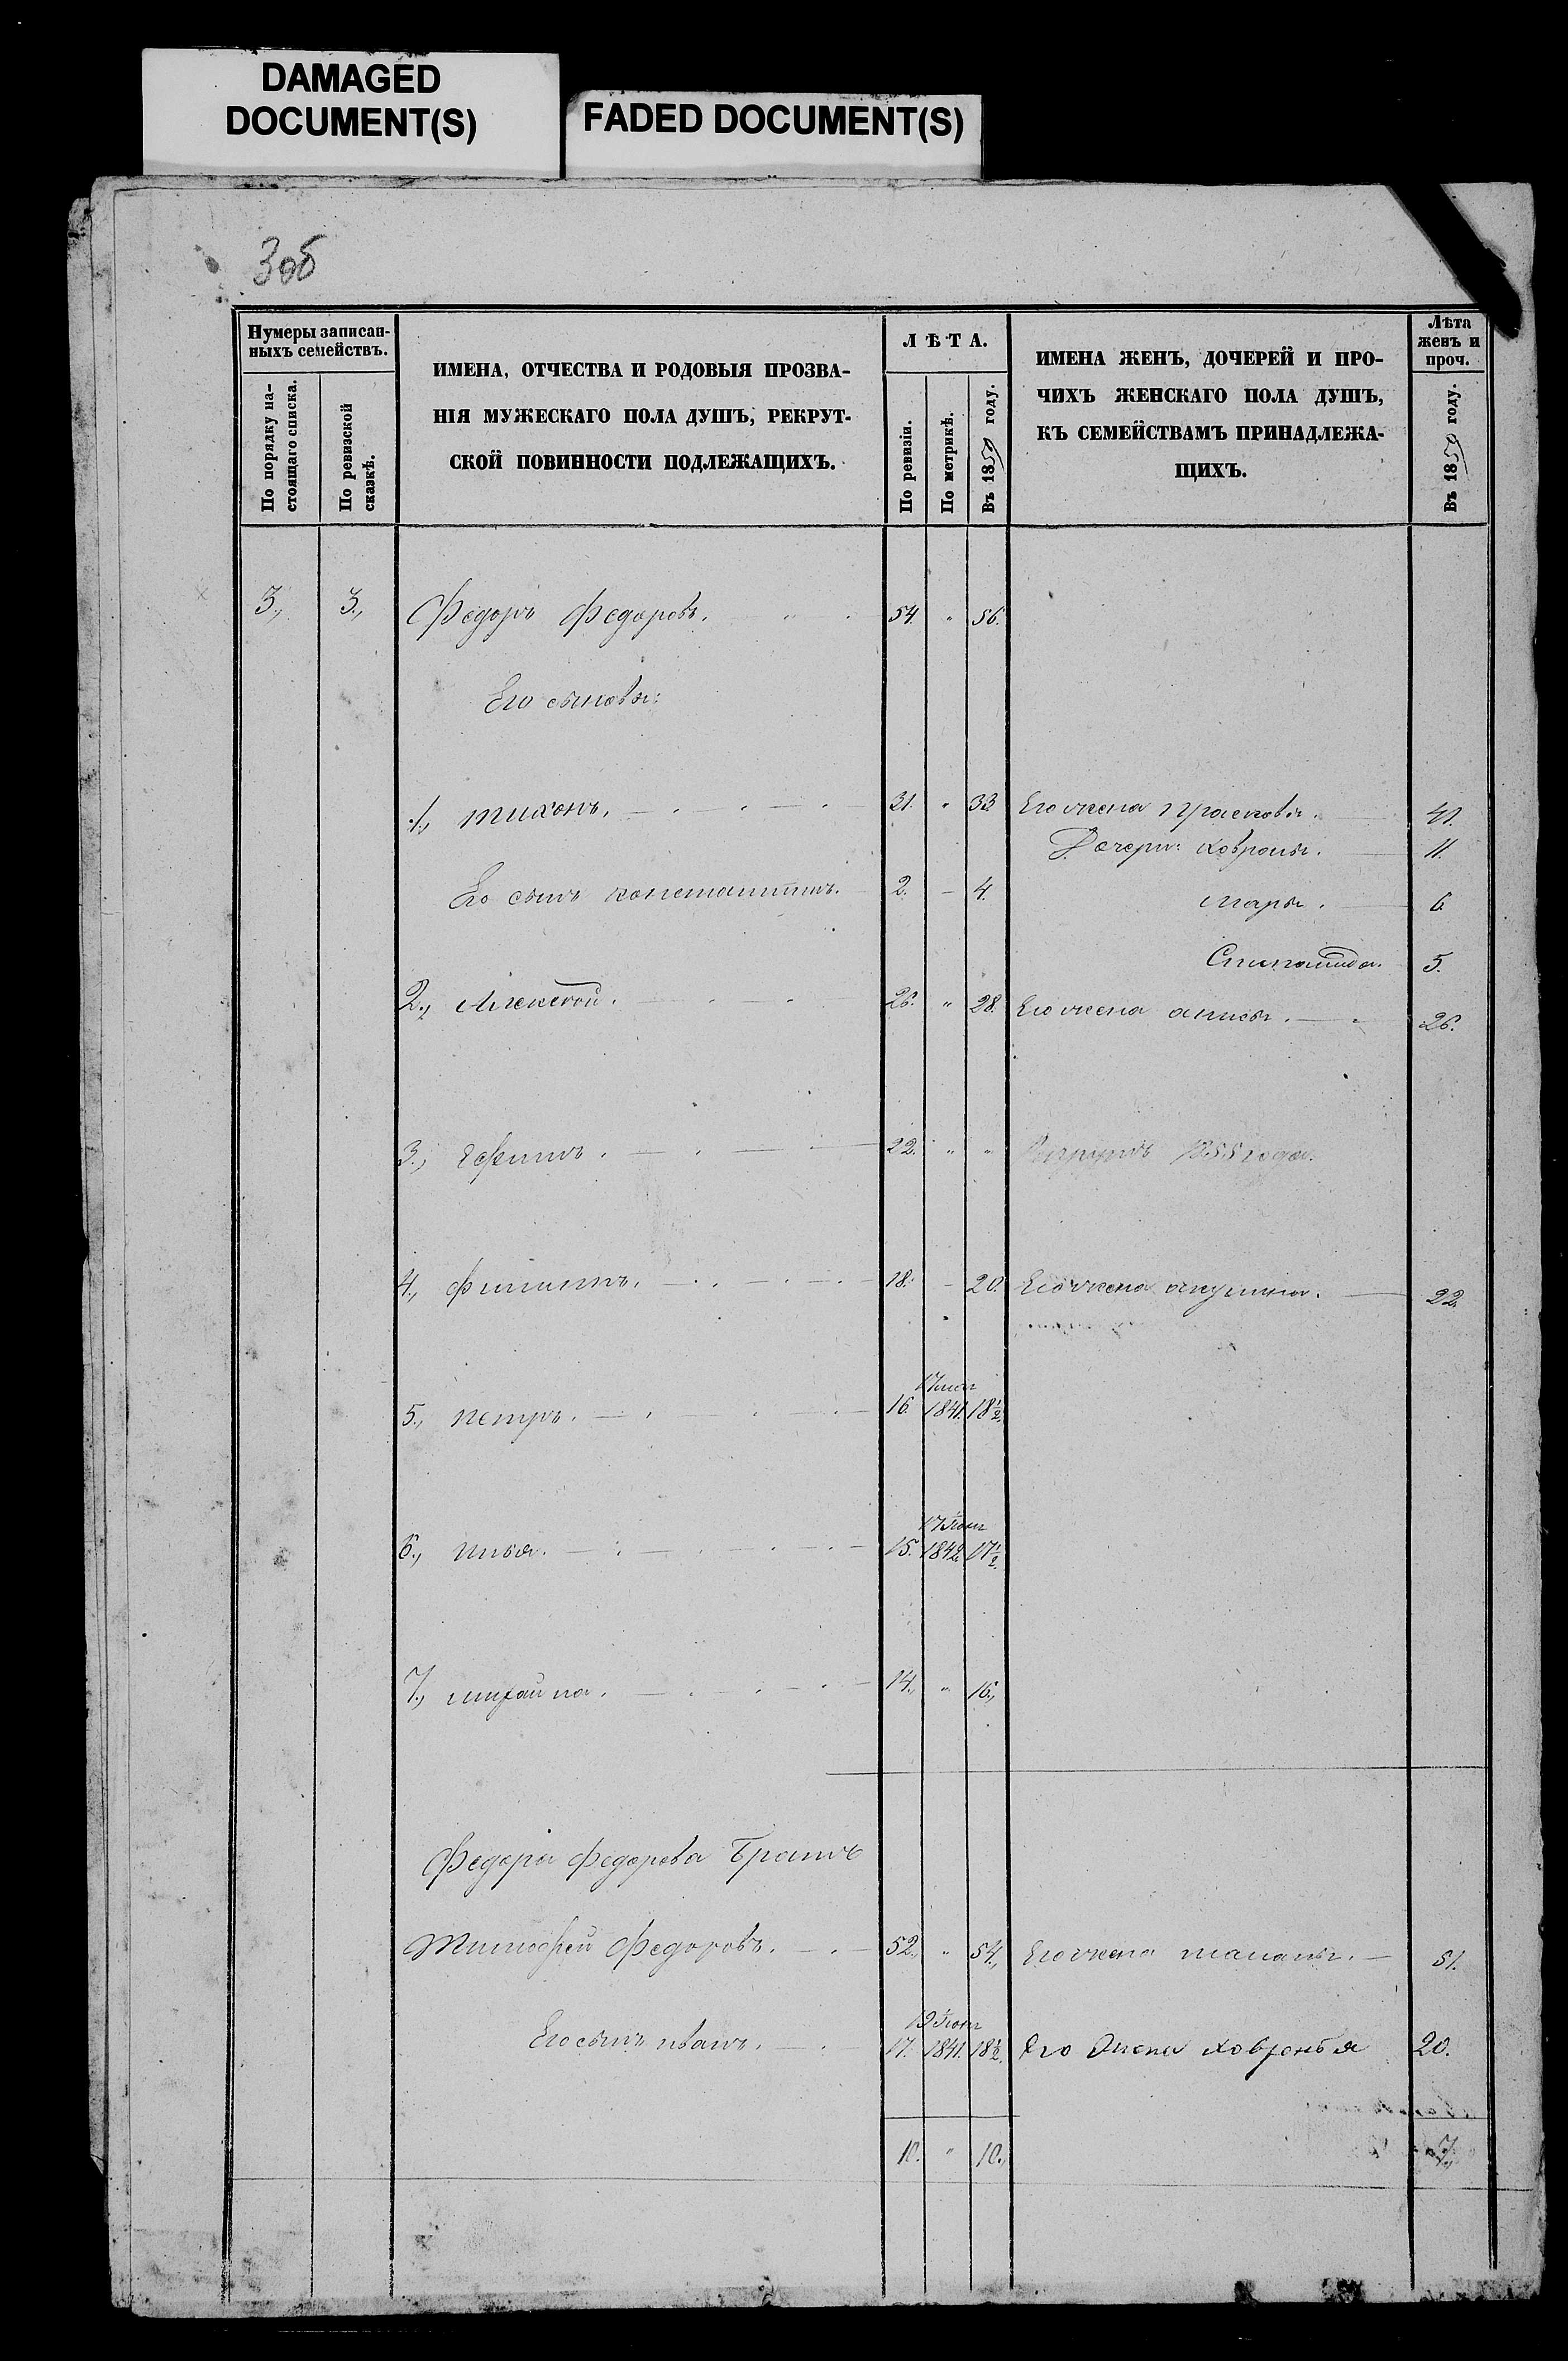 DAMAGED
DOCUMENT(S)
FADED DOCUMENT(S)
3об
Нумеры записан-
ныхъ семействъ.
По порядку на-
стоящаго списка.
По ревизской
сказкѣ.
ИМЕНА, ОТЧЕСТВА И РОДОВЫЯ ПРОЗВА-
НІЯ МУЖЕСКАГО ПОЛА ДУШЪ, РЕКРУТ-
СКОЙ ПОВИННОСТИ ПОДЛЕЖАЩИХЪ.
ЛѢТА.
По ревизіи.
По метрикѣ.
Въ 1859 году.
ИМЕНА ЖЕНЪ, ДОЧЕРЕЙ И ПРО-
ЧИХЪ ЖЕНСКАГО ПОЛА ДУШЪ,
КЪ СЕМЕЙСТВАМЪ ПРИНАДЛЕЖА-
ЩИХЪ.
Лѣта
женъ и
проч.
Въ 1859 году.
3., 3., Федоръ Федоровъ. 54. " 56.
Его сыновья:
1., тихонъ. 31. " 33. Его жена Прасковья. 41.
Дочери: Хавронья. 11.
Его сынъ константинъ. 2. - 4. марья. 6.
Степанида. 5.
2., Алексѣй. 26. " 28. Его жена анисья. 26.
3., Ефимъ. 22. " " Рекрутъ 1855 года.
4., филиппъ. 18. - 20. Его жена акулина. 22.
5., петръ. 16. 17 1841. 18½.
6., илья. 15. 17 Іюля 1842. 17½.
7., михайла. 14., " 16.,
Федора Федорова Братъ
Тимофей Федоровъ. 52., " 54., Его жена татьяна. 51.
Его сынъ иванъ. 17. 19 Іюля 1841. 18½. Его Жена Хавронья 20.
10. " 10., 7.,